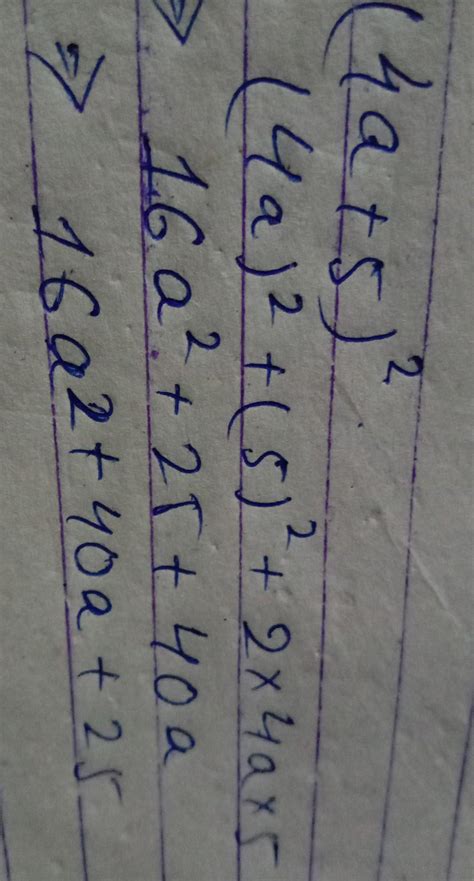 (4a+5)²
(4a)²+(5)²+2×4a×5
⇒ 16a²+25+40a
⇒ 16a2+40a+25